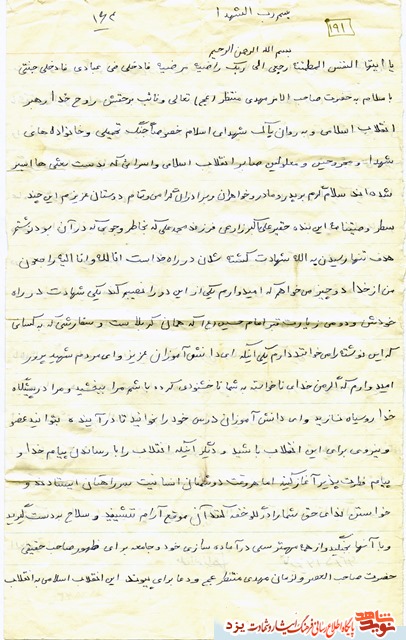 بسم رب الشهدا
۱۹۱
بسم الله الرحمن الرحیم
یا ایتها النفس المطمئنه ارجعی الی ربک راضیة مرضیة فادخلی فی عبادی فادخلی جنتی
با سلام به حضرت صاحب الامر مهدی منتظر (عج) تعالی و نائب برحقش روح خدا رهبر
انقلاب اسلامی و به روان پاک شهدای اسلام خصوصاً جنگ تحمیلی و خانواده های
شهدا و مجروحین و معلولین صابر انقلاب اسلامی و اسرائی که بدست بعثی ها اسیر
شده اند سلام گرم بر پدر و مادر و خواهران و برادران گرامی و تمام دوستان عزیزم این چند
سطر وصیتنامه این بنده حقیر علی اکبر زارعی فرزند محمد علی که بخاطر وجوبی که در آن بود نوشتم
هدف تنها رسیدن به الله شهادت کشته شدن در راه خداست انا لله و انا الیه راجعون
من از خدا دو چیز می خواهم که امیدوارم یکی از این دو را نصیبم کند یکی شهادت در راه
خودش و دومی زیارت قبر امام حسین (ع) که همانی کربلا ست و سفارشی که به کسانی
که این نوشته را می خوانند دارم یکی اینکه ای دانش آموزان عزیز و ای مردم شهید پرور
امیدوارم که اگر من خدای ناخواسته به شما ناخشنودی کرده باشم مرا ببخشید و مرا در پیشگاه
خدا رو سیاه نسازید و ای دانش آموزان درس خود را بخوانید تا در آینده بتوانید عضو
و نیروی برای این انقلاب باشید و دیگر اینکه انقلاب را با رساندن پیام خدا و
پیام فطرت پذیر آغاز کنید اما هروقت دشمنان انسانیت سر راهتان ایستادند و
خواستن ندای حق شما را در گلو خفه کنند آن موقع آرام ننشینید و سلاح بدست گیرید
و با آنها بجنگید و از همه مهمتر سعی در آماده سازی خود و جامعه برای ظهور صاحب حقیقی
حضرت صاحب العصر و زمان مهدی منتظر عج و دعا برای پیوند این انقلاب اسلامی به انقلاب
نوید شاهد
پایگاه اطلاع رسانی فرهنگ ایثار و شهادت یزد